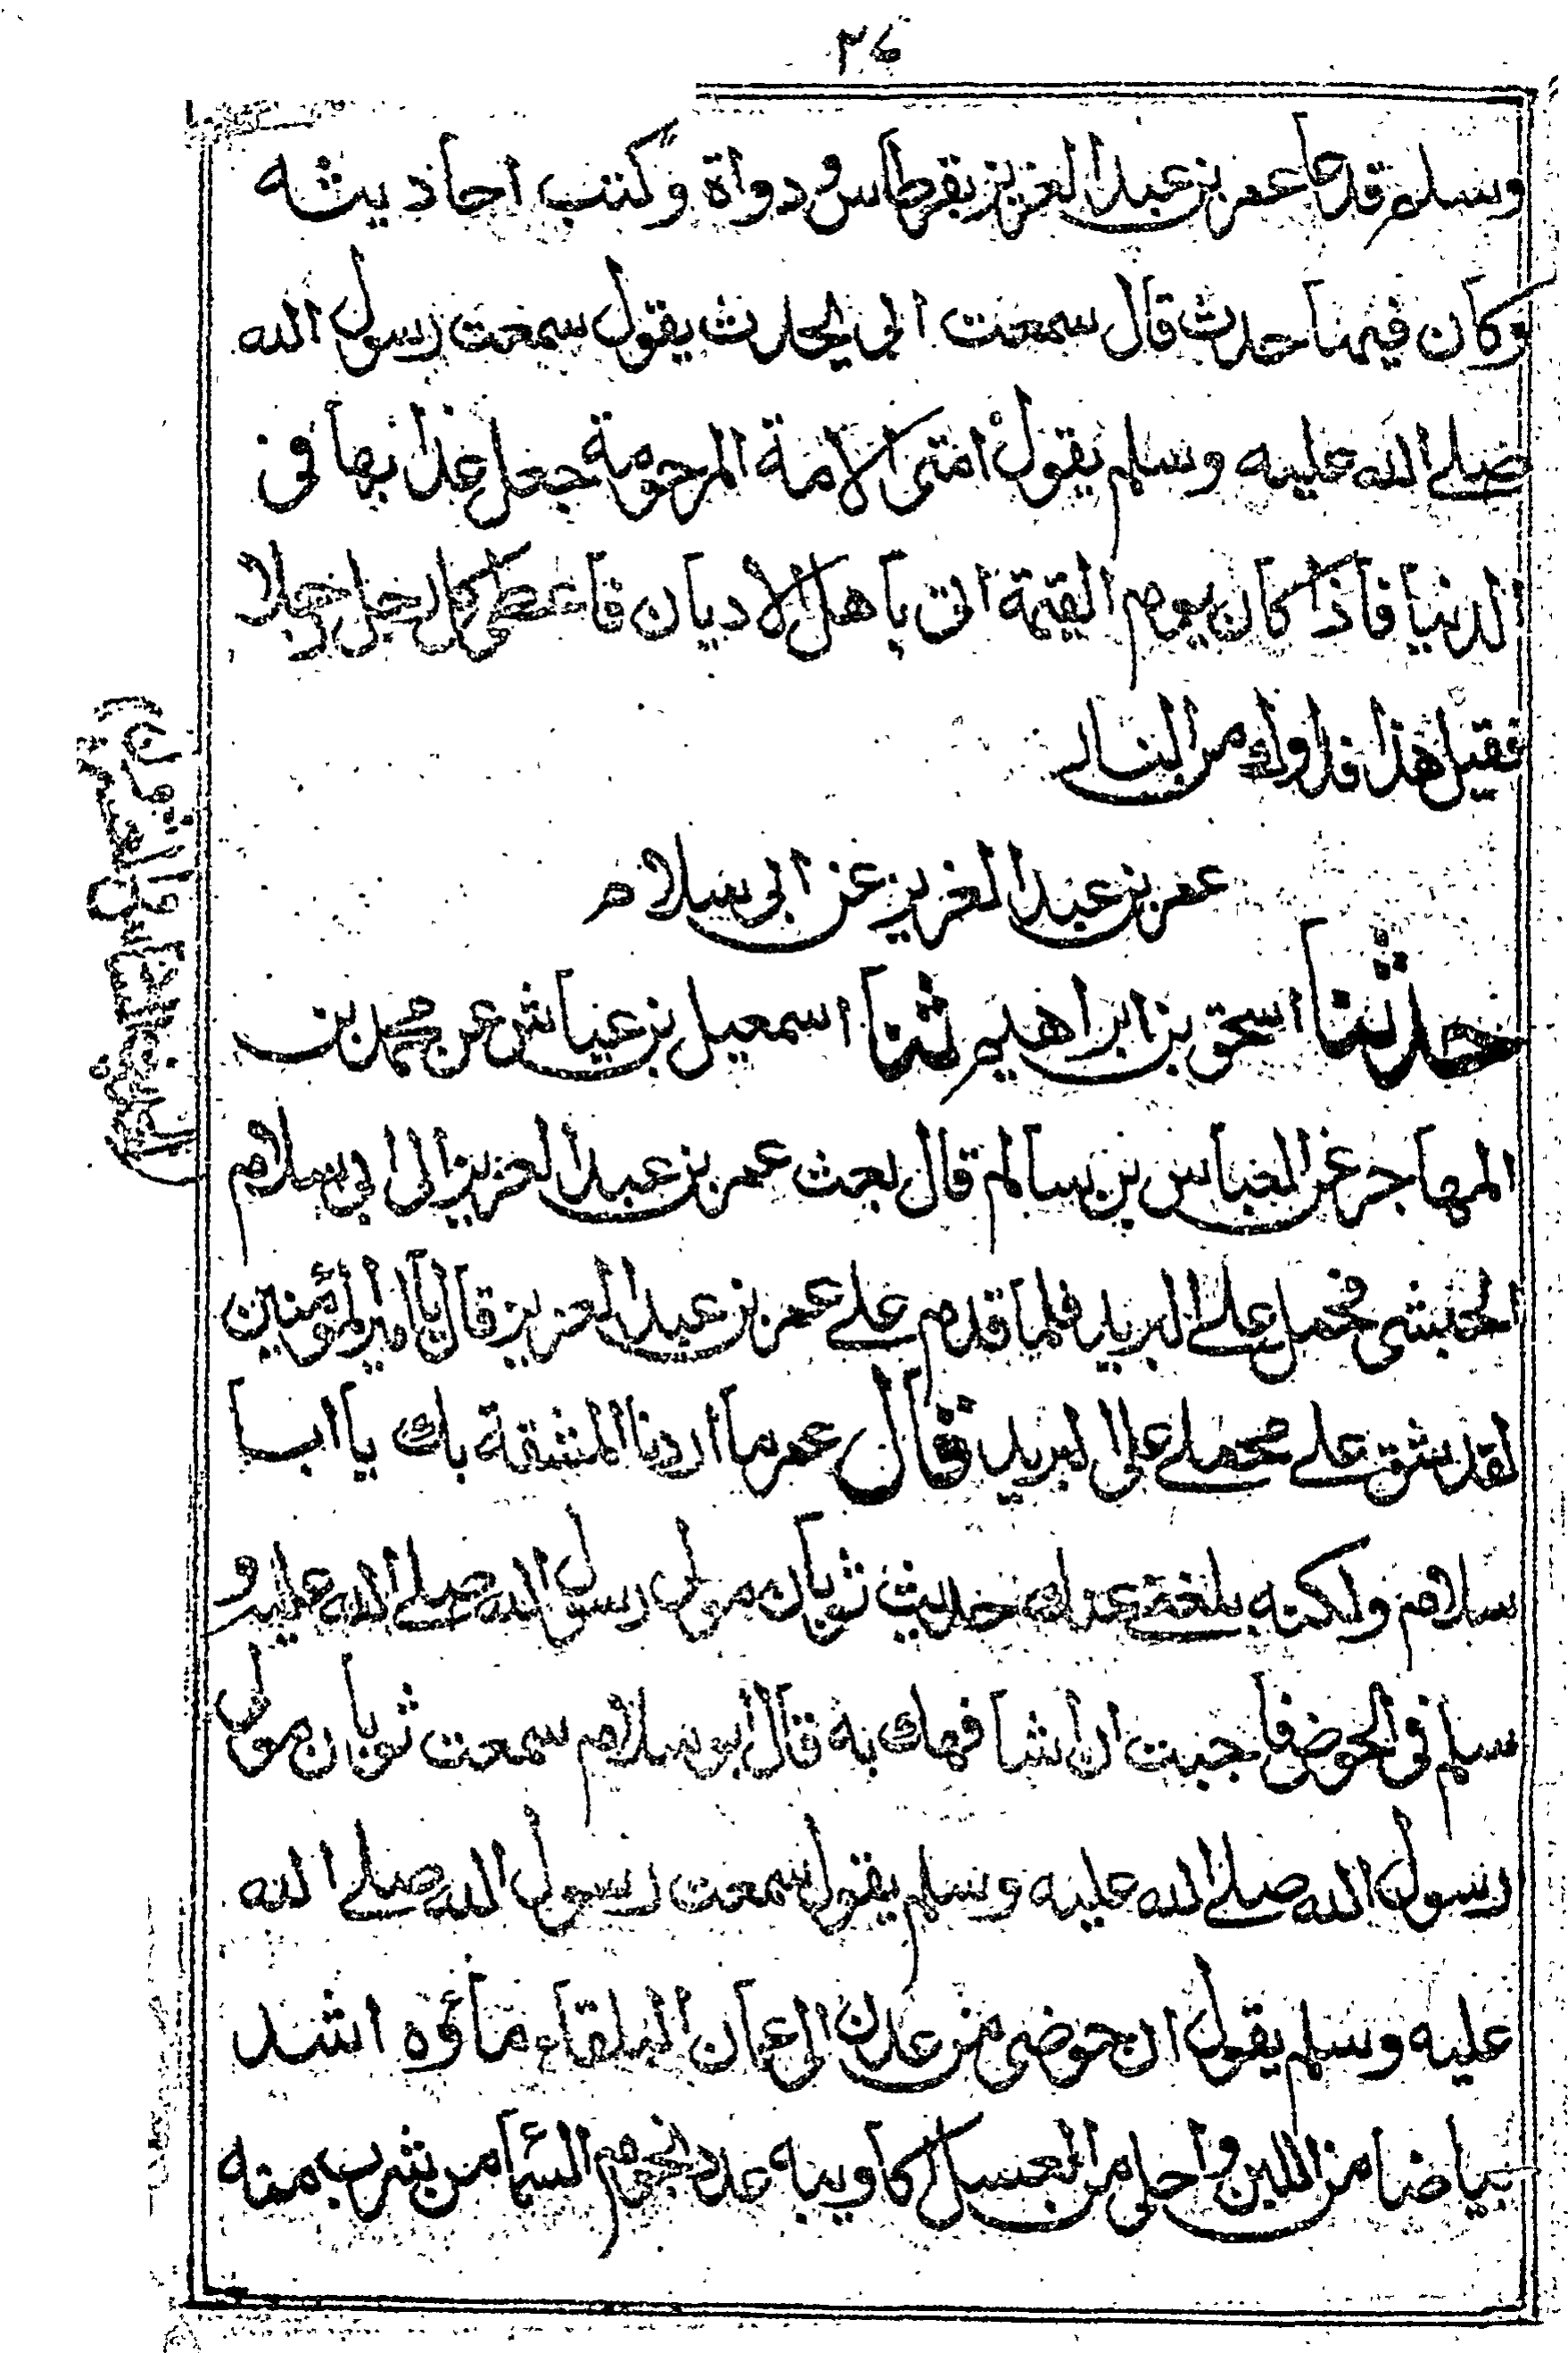 ٢٤
وسلم فدعا عمر بن عبد العزيز بقرطاس ودواة وكتب احاديثه
وكان فيهنا حدث قال سمعت ابي يحدث يقول سمعت رسول الله
صلے الله عليه وسلم يقول امتى الامة المرحومة جعل عذابها في
الدنيا فاذا كان يوم القيمة اتى باهل الاديان فاعطى كل رجل رجلا
فقيل هذا فداوك من النار
عمر بن عبد العزيز عن ابي سلام
حدثنا اسحق بن ابراهيم ثنا اسمعيل بن عياش عن محمد بن
المهاجر عن العباس بن سالم قال بعث عمر بن عبد العزيز الى ابي سلام
الحبشى فحمل علے البريد فلما قدم علے عمر بن عبد العزيز قال يا امير المؤمنين
لقد شق علے محملے على البريد فقال عمر ما اردنا المشقة بك يا ابا
سلام ولكنه بلغنے عنك حديث ثوبان مولى رسول الله صلے الله عليه و
سلم في الحوض فاحببت ان اشافهك به قال ابو سلام سمعت ثوبان مولى
رسول الله صلے الله عليه وسلم يقول سمعت رسول الله صلے الله
عليه وسلم يقول ان حوضى من عدن الى عمان البلقاء ماؤه اشد
بياضا من اللبن واحلى من العسل اكاويبه عدد نجوم السماء من شرب منه